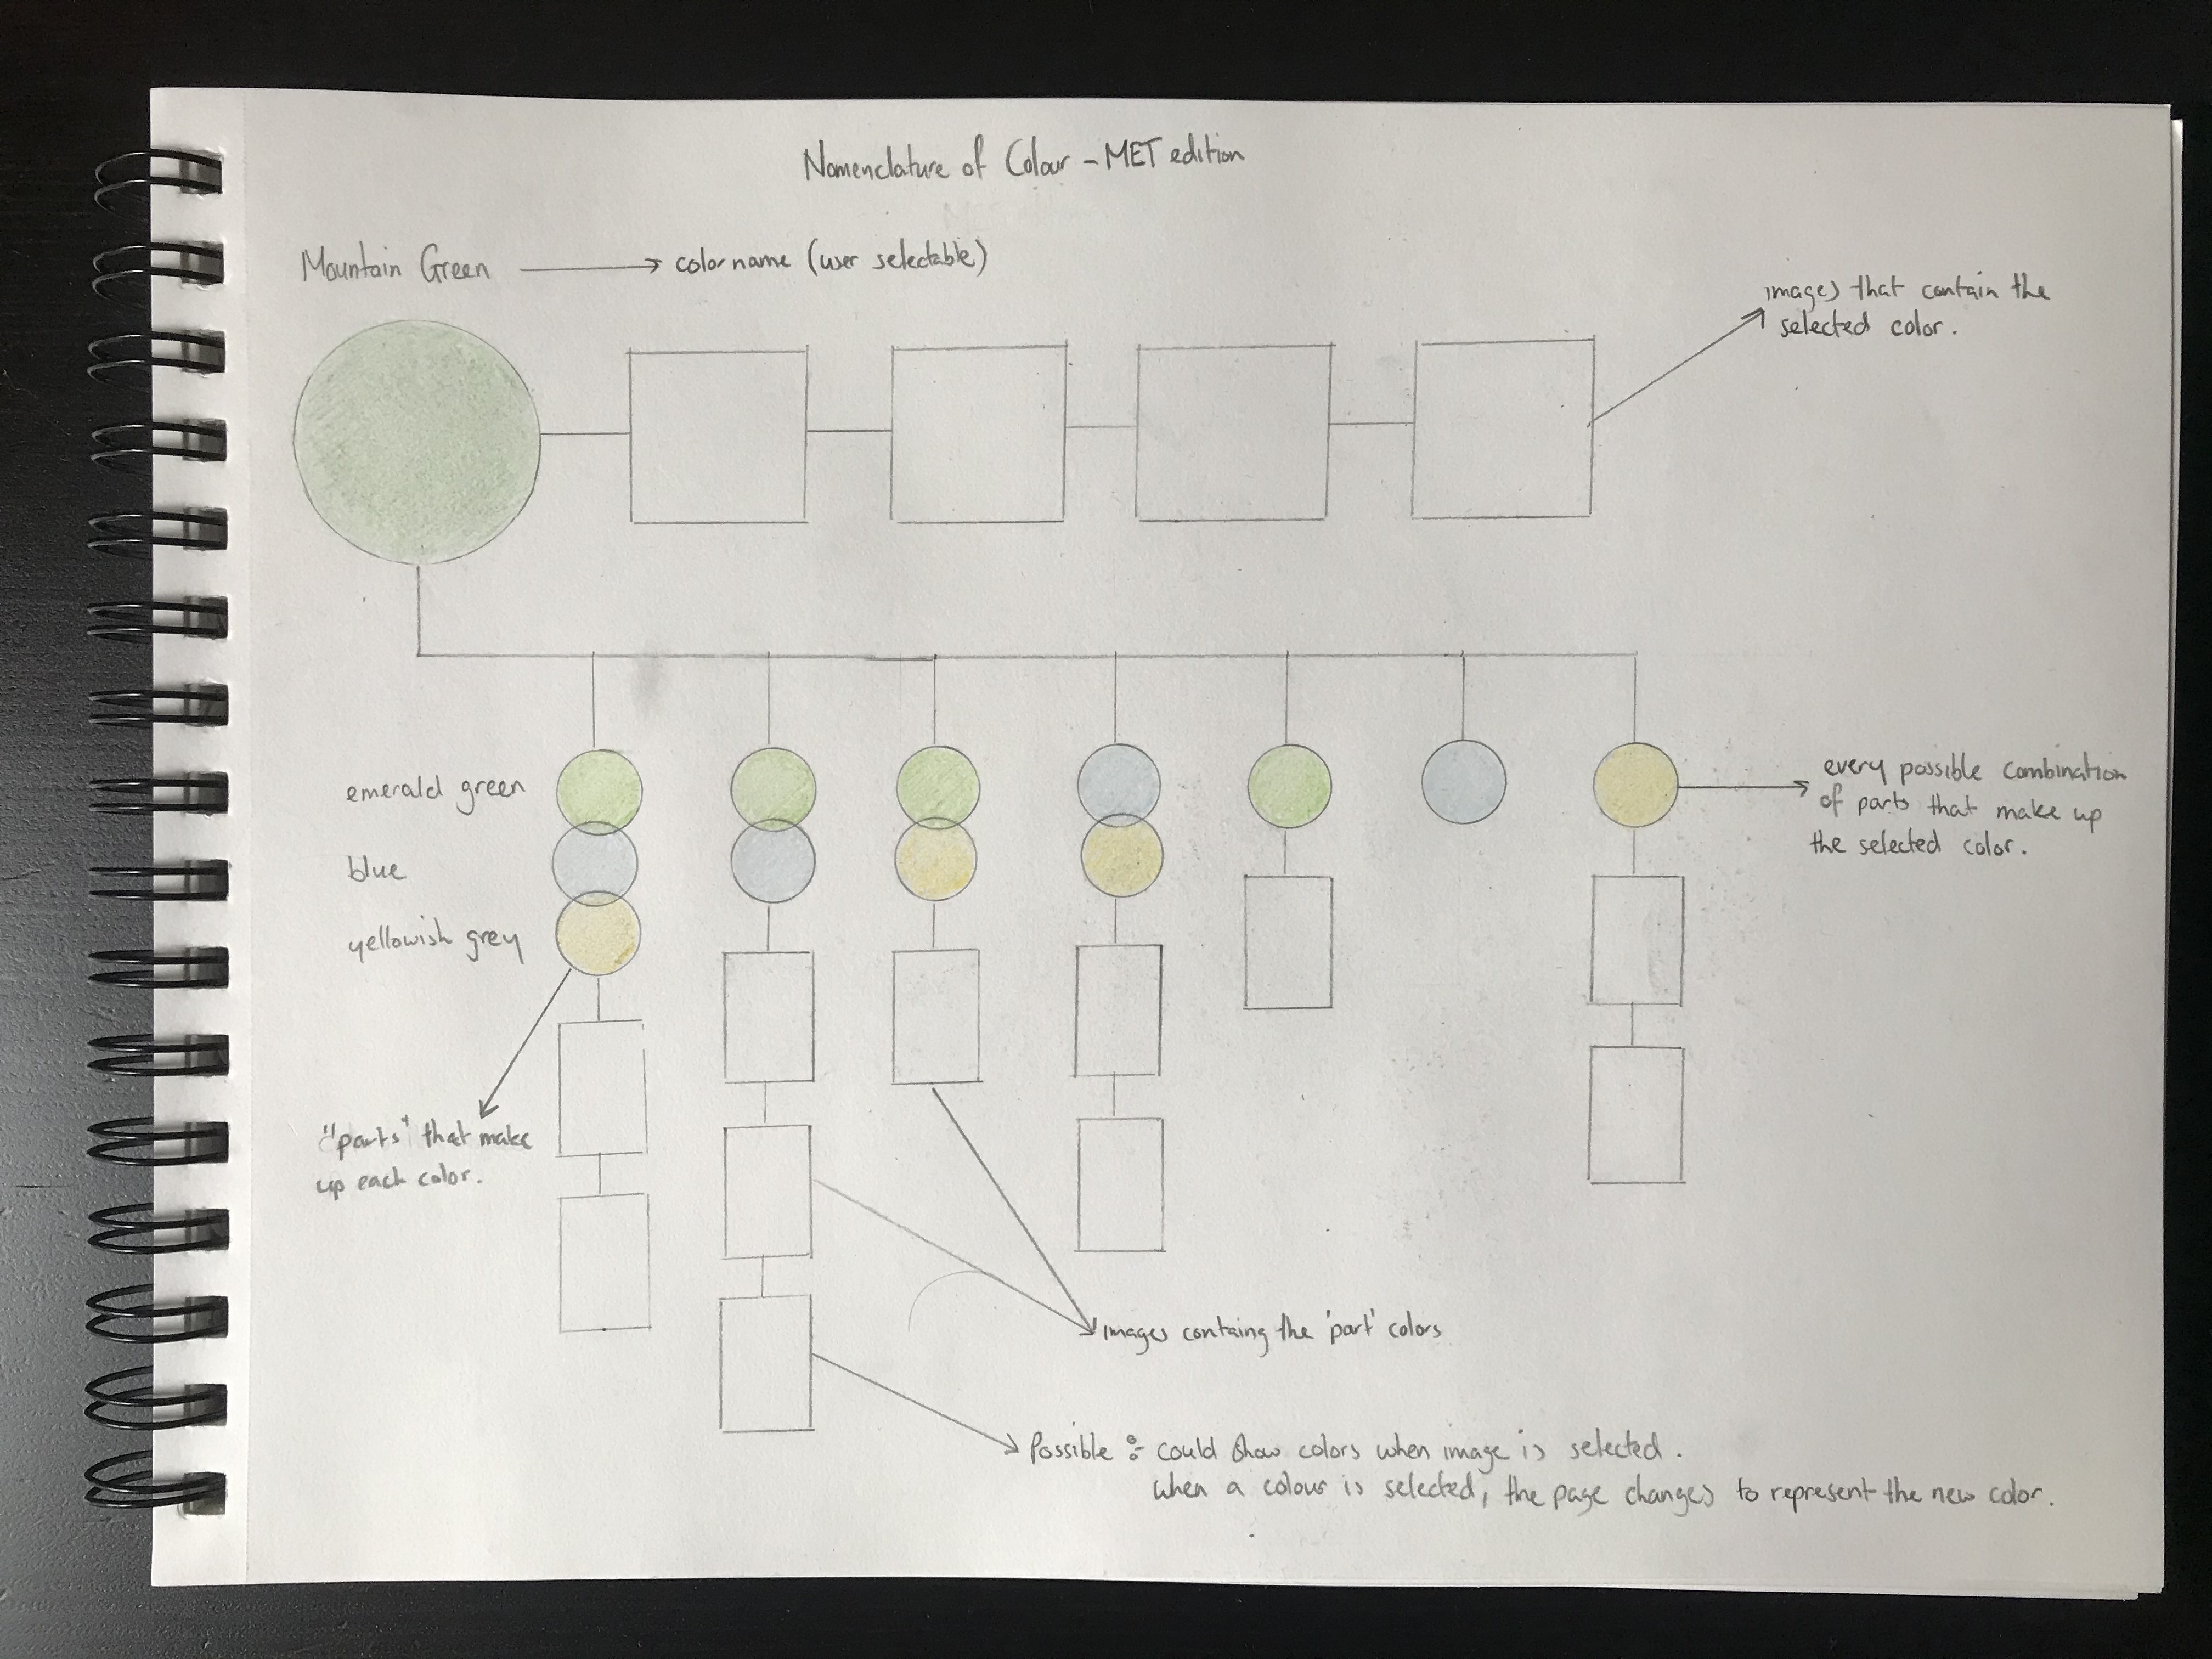 Nomenclature of Colour - MET edition
Mountain Green
color name (user selectable)
images that contain the
selected color.
emerald green
blue
yellowish grey
every possible combination
of parts that make up
the selected color.
"parts" that make
up each color.
images containg the 'part' colors
Possible :- could show colors when image is selected.
when a colour is selected, the page changes to represent the new color.